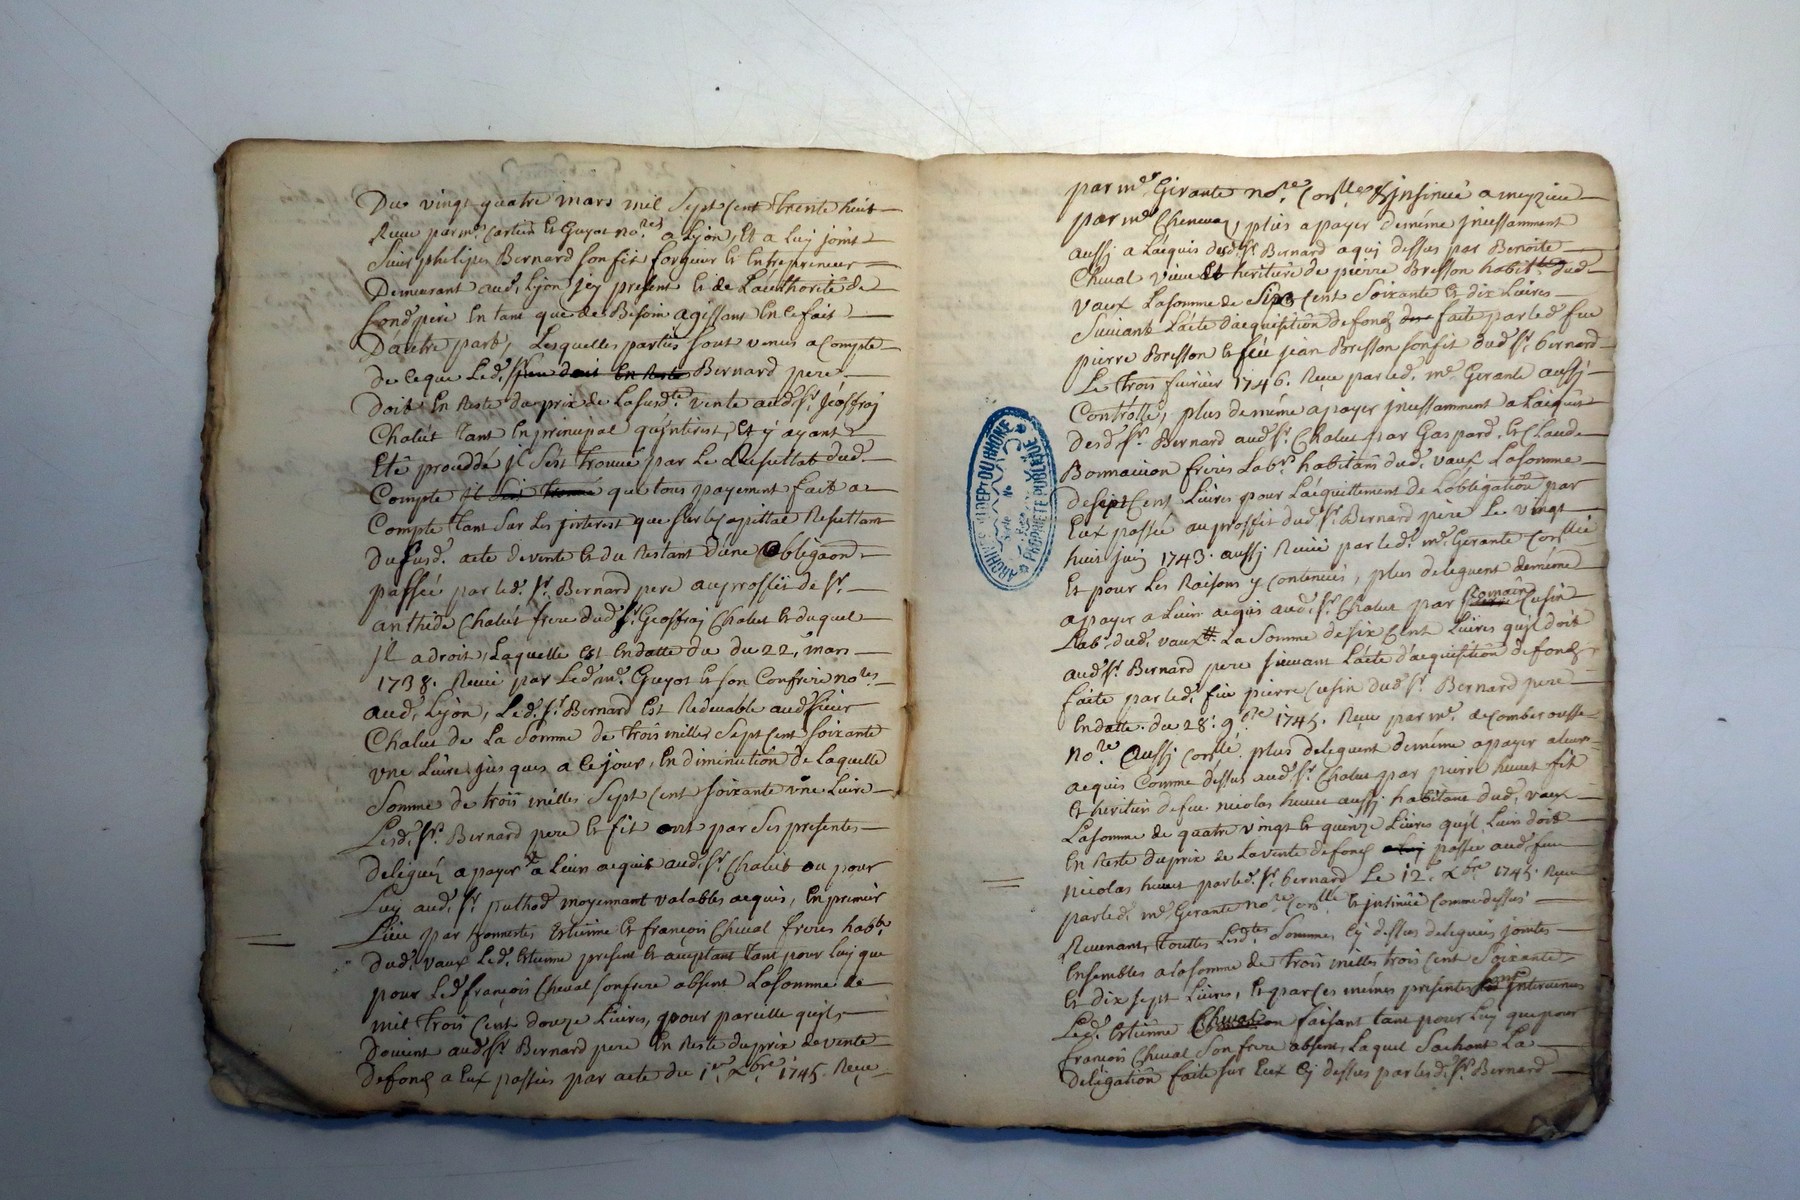 Du vingt quatre mars mil sept cent trente huit
Receu par me. Cartein et Guyot nores. a Lyon, Et a luy joint
Sieur philipes Bernard son fit forgeur et Entrepreneur
Demeurant aud. Lyon jcy present et de Lauthorité de
sond. pere En tant que de Besoin agissant En ce fait
Dautre part, Lesquelles parties sont venus a Compte
de ceque Led. sr. Bernard pere
doit En Reste du prix de La susdte. vente aud. sr. jeoffray
Chalut tant En principal qu'jnterest, Et y ayant
Eté proceddé jl s'est trouué par Le Resultat dud.
Compte que tous payement fait a
Compte tant sur Les jnterest que sur les capittal Resultant
du susd. acte de vente et du Restant d'une obligaon
passée par led. sr. Bernard pere au proffit de sr.
anthide Chalut frere dud. sr. Geoffray Chalut et duquel
jl a droit, Laquelle est En datte du du 22, mars
1738. Receu par Led. me. Guyot et son Confrere nores.
aud. Lyon, Led. sr. Bernard Est Redeuable aud. sieur
Chalut de La somme de trois milles sept cent soixante
vne Liure jusques a ce jour, En diminution de Laquelle
somme de trois milles sept cent soixante vne Liure
Lesd. srs. Bernard pere et fit ont par ses presentes
delegués a payer a Leur acquit aud. sr. Chalut ou pour
Luy aud. sr. pulhod moyennant valables acquis, En premier
Lieu par honnestes Estienne et françois Cheual freres habts.
dud. vaux Led. Estienne present et acceptant tant pour luy que
pour Led. françois Cheual son frere absent La somme de
mil trois cent douze Liures, pour parcelle quils
Doiuent aud. sr. Bernard pere En Reste du prix de vente
de fond a Eux passées par acte du 1er. xbre. 1745. Receu
par me. Girante nore. Corlle. & jnsinué a meyzieu
par me. Cheneuaz, plus a payer de même jncessamment
aussj a Lacquis dud. sr. Bernard a quj dessus par Benoite
Cheual veuue et heritiere de pierre Bresson habitte. dud.
vaux La somme de six cent soixante et dix Liures
Suiuant L'acte d'acquisition de fond faite par led. feu
pierre Bresson et feu jean Bresson son fit dud. sr. bernard
Le trois feurier 1746. Receu par led. me. Gerante aussj
Controllé, plus de même a payer jncessamment a L'acquis
desd. sr. Bernard aud. sr. Chalut par Gaspard et Claude
Bonnauion freres Labrs. habitans dud. vaux La somme
de sept cent Liures pour L'acquittement de Lobligation par
Eux passée au proffit dud. sr. Bernard pere Le vingt
huit juin 1743. aussj Receu par led. me. Gerante Corllée
Et pour Les Raisons y contenues, plus deleguent de même
a payer a Leur acquis aud. sr. Chalut par Romain Cusin
Labr. dud. vaux La somme de six cent Liures quil doit
aud. sr. Bernard pere suiuant L'acte d'acquisition de fond
faite par led. feu pierre Cusin dud. sr. Bernard pere
En datte du 28. 9bre 1745. Receu par me. decomberousse
nore. aussj Corlé. plus deleguent de même a payer a leur
acquis Comme dessus aud. sr. Chalut par pierre huuet fit
et heritier de feu nicolas huuet aussj habitant dud. vaux
La somme de quatre vingt et quinze Liures quil Leur doit
En Reste du prix de La vente de fond passée aud. feu
nicolas huuet par led. sr. bernard Le 12e. xbre. 1745. Receu
par led. me. Gerante nore. Corlle et jnsinué comme dessus
Reuenant, touttes Lesdtes. sommes cy dessus deleguées jointes
Ensembles a la somme de trois milles trois cent soixante
et dix sept Liures, Et par ces mêmes presentes jnteruenus
Led. Estienne Cheual faisant tant pour luy que pour
françois Cheual son frere absent, Lequel sachant La
delégation faite sur Eux cy dessus par led. sr. Bernard
ARCHIVES DU DEPT DU RHONE
PROPRIETE PUBLIQUE